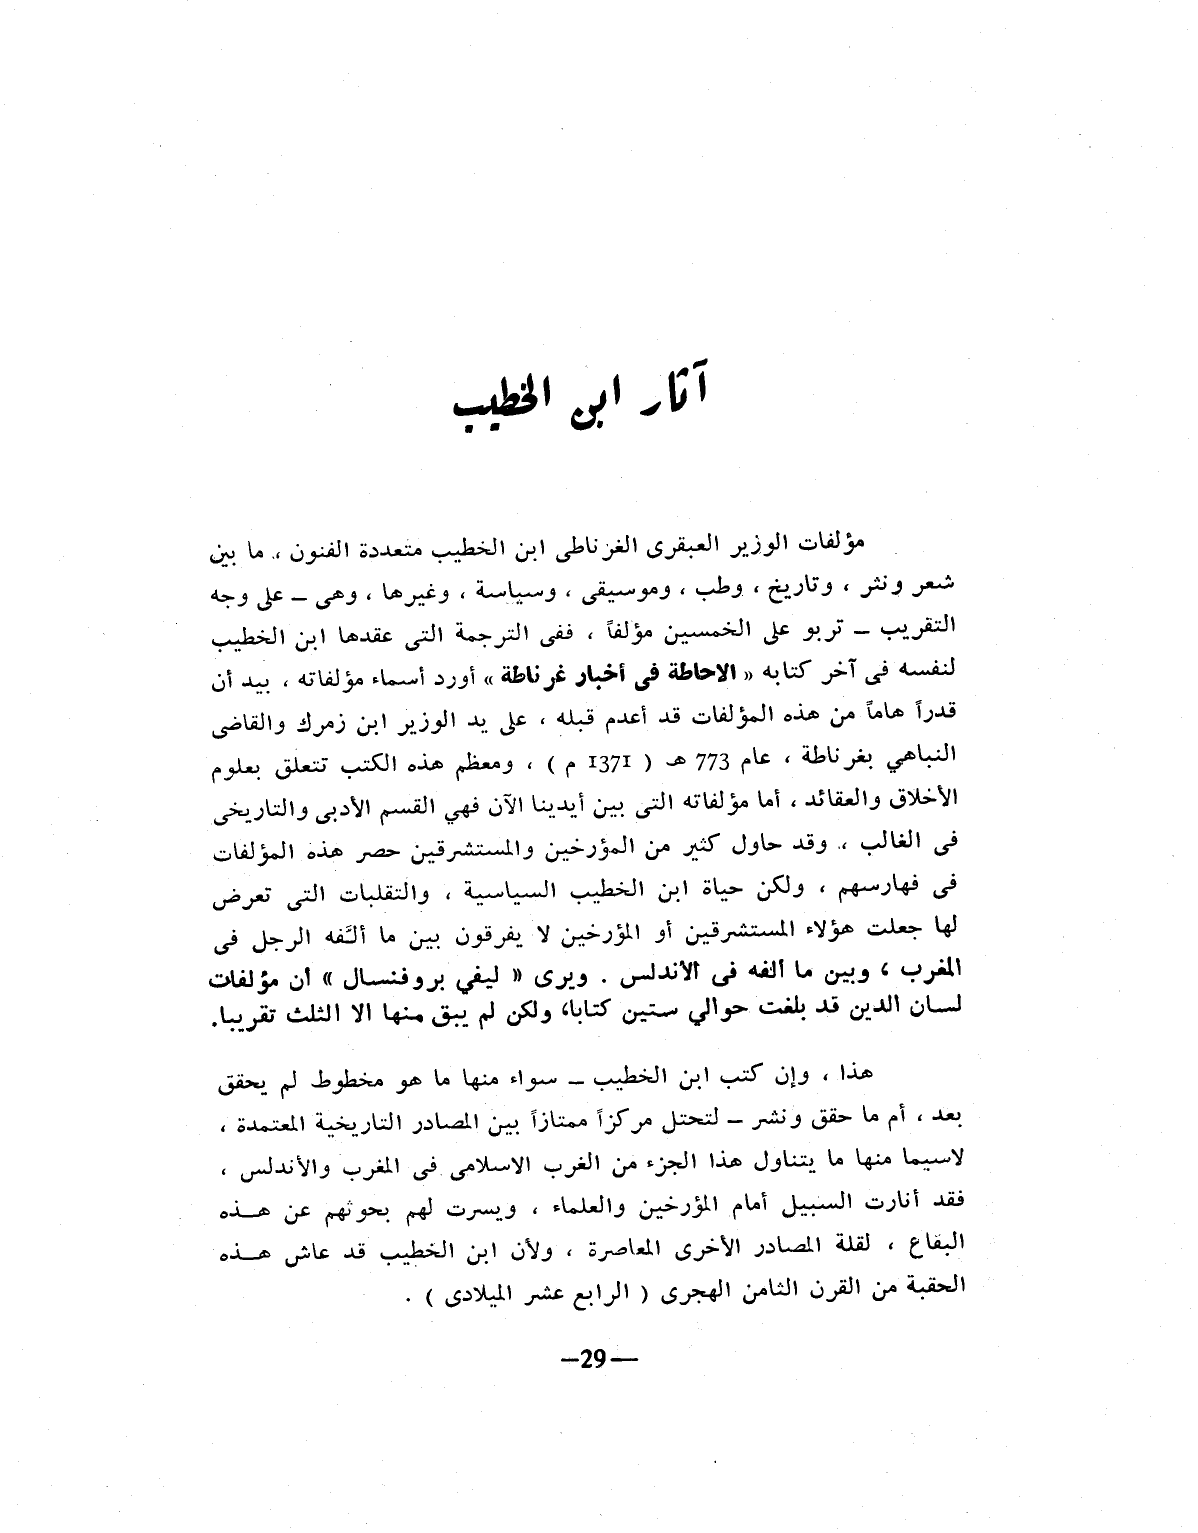 آثار ابن الخطيب
مؤلفات الوزير العبقرى الغرناطى ابن الخطيب متعددة الفنون ، ما بين
شعر ونثر ، وتاريخ ، وطب ، وموسيقى ، وسياسة ، وغيرها ، وهى – على وجه
التقريب – تربو على الخمسين مؤلفاً ، ففى الترجمة التى عقدها ابن الخطيب
لنفسه فى آخر كتابه « الاحاطة فى أخبار غرناطة » أورد أسماء مؤلفاته ، بيد أن
قدراً هاماً من هذه المؤلفات قد أعدم قبله ، على يد الوزير ابن زمرك والقاضى
النباهي بغرناطة ، عام 773 هـ ( 1371 م ) ، ومعظم هذه الكتب تتعلق بعلوم
الأخلاق والعقائد ، أما مؤلفاته التى بين أيدينا الآن فهي القسم الأدبى والتاريخى
فى الغالب ، وقد حاول كثير من المؤرخين والمستشرقين حصر هذه المؤلفات
فى فهارسهم ، ولكن حياة ابن الخطيب السياسية ، والتقلبات التى تعرض
لها جعلت هؤلاء المستشرقين أو المؤرخين لا يفرقون بين ما ألَّفه الرجل فى
المغرب ، وبين ما ألفه فى الأندلس . ويرى « ليفي بروفنسال » أن مؤلفات
لسان الدين قد بلغت حوالي ستين كتابا، ولكن لم يبق منها الا الثلث تقريبا.
هذا ، وإن كتب ابن الخطيب – سواء منها ما هو مخطوط لم يحقق
بعد ، أم ما حقق ونشر – لتحتل مركزاً ممتازاً بين المصادر التاريخية المعتمدة ،
لاسيما منها ما يتناول هذا الجزء من الغرب الاسلامى فى المغرب والأندلس ،
فقد أنارت السبيل أمام المؤرخين والعلماء ، ويسرت لهم بحوثهم عن هـــذه
البقاع ، لقلة المصادر الأخرى المعاصرة ، ولأن ابن الخطيب قد عاش هـــذه
الحقبة من القرن الثامن الهجرى ( الرابع عشر الميلادى ) .
—29—